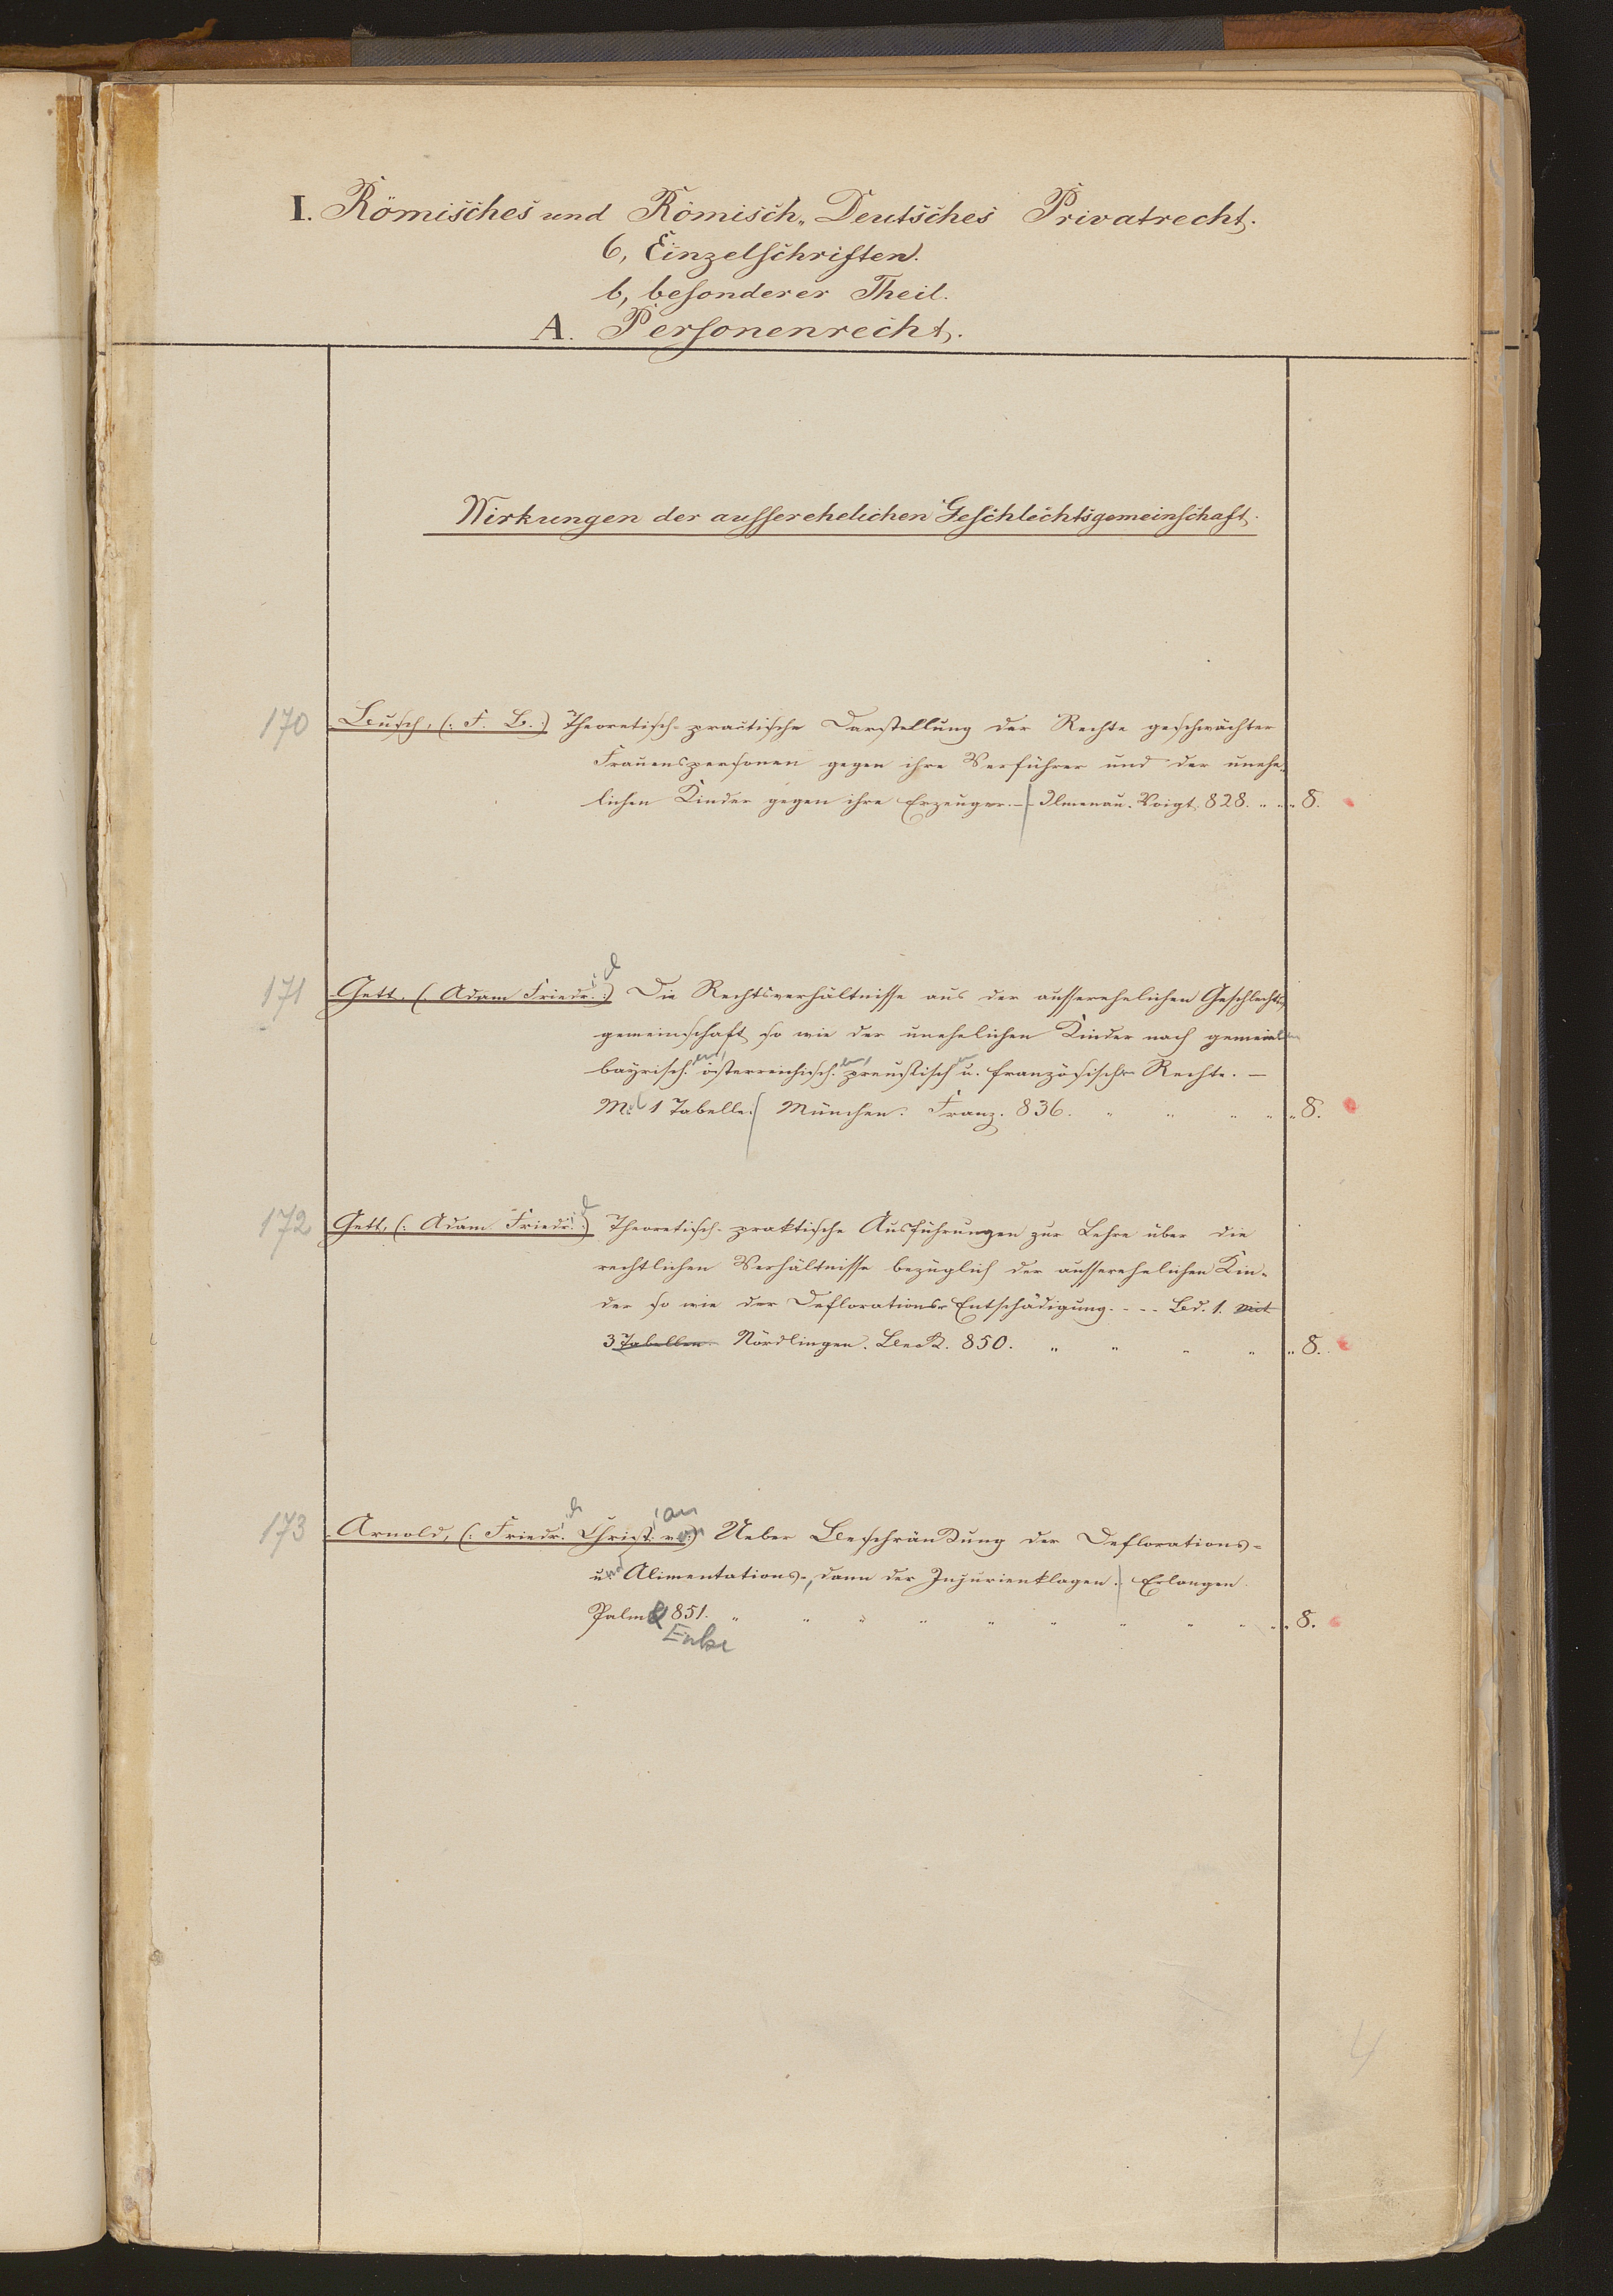 I. Römisches und Römisch-Deutsches Privatrecht.
6, Einzelschriften.
b, besonderer Theil.
A. Personenrecht.
Wirkungen der ausserehelichen Geschlechtsgemeinschaft.
170 Busch, (: F. B. :) Theoretisch-practische Darstellung der Rechte geschwächter
Frauenspersonen gegen ihre Verführer und der unehe-
lichen Kinder gegen ihre Erzeuger. – Ilmenau. Voigt. 828. „ „ „ 8.
171 Gett, (: Adam Friedrich :) Die Rechtsverhältnisse aus der ausserehelichen Geschlechts-
gemeinschaft so wie der unehelichen Kinder nach gemeinem
bayrischen, österreichischen, preussischen u. französischen Rechte. –
Mit 1 Tabelle. München. Franz. 836. „ „ „ „ „ 8.
172 Gett, (: Adam Friedrich :) Theoretisch-praktische Ausführungen zur Lehre über die
rechtlichen Verhältnisse bezüglich der ausserehelichen Kin-
der so wie der Deflorations-Entschädigung. - - - Bd. 1. mit
3 Tabellen. Nördlingen. Beck. 850. „ „ „ „ „ 8.
173 Arnold, (: Friedrich Christian von :) Ueber Beschränkung der Deflorations-
und Alimentations-, dann der Injurienklagen. Erlangen.
Palm & 851. „ „ „ „ „ „ „ „ „ „ 8.
Enke
4